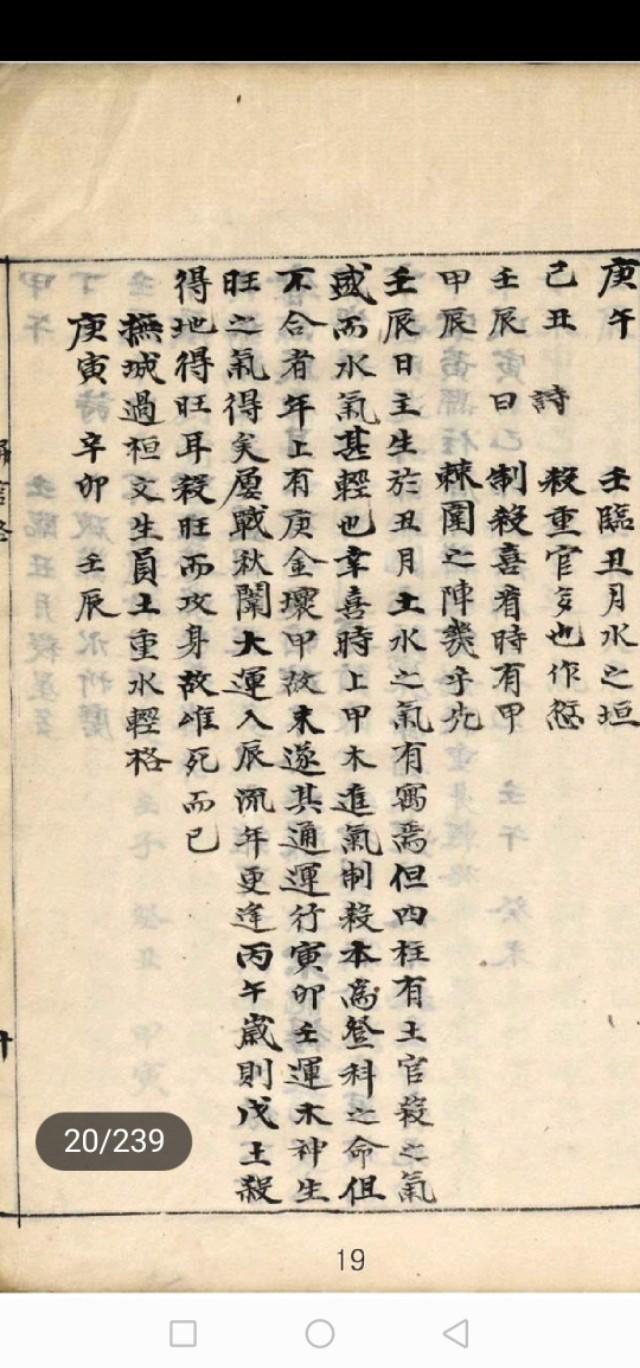 庚午　壬臨丑月水之垣
己丑　詩　殺重官多也作愆
壬辰日　制殺喜看時有甲
甲辰　棘圍之陣幾乎先
壬辰日主生於丑月土水之氣有寓焉但四柱有土官殺之氣
盛而水氣甚輕也幸喜時上甲木進氣制殺本為登科之命但
不合者年上有庚金壞甲故未遂其通運行寅卯壬運木神生
旺之氣得矣屢戰秋闈大運入辰流年更逢丙午歲則戊土殺
得地得旺耳殺旺而攻身故唯死而已
撫城過桓文生員土重水輕格
庚寅 辛卯 壬辰
20/239
19